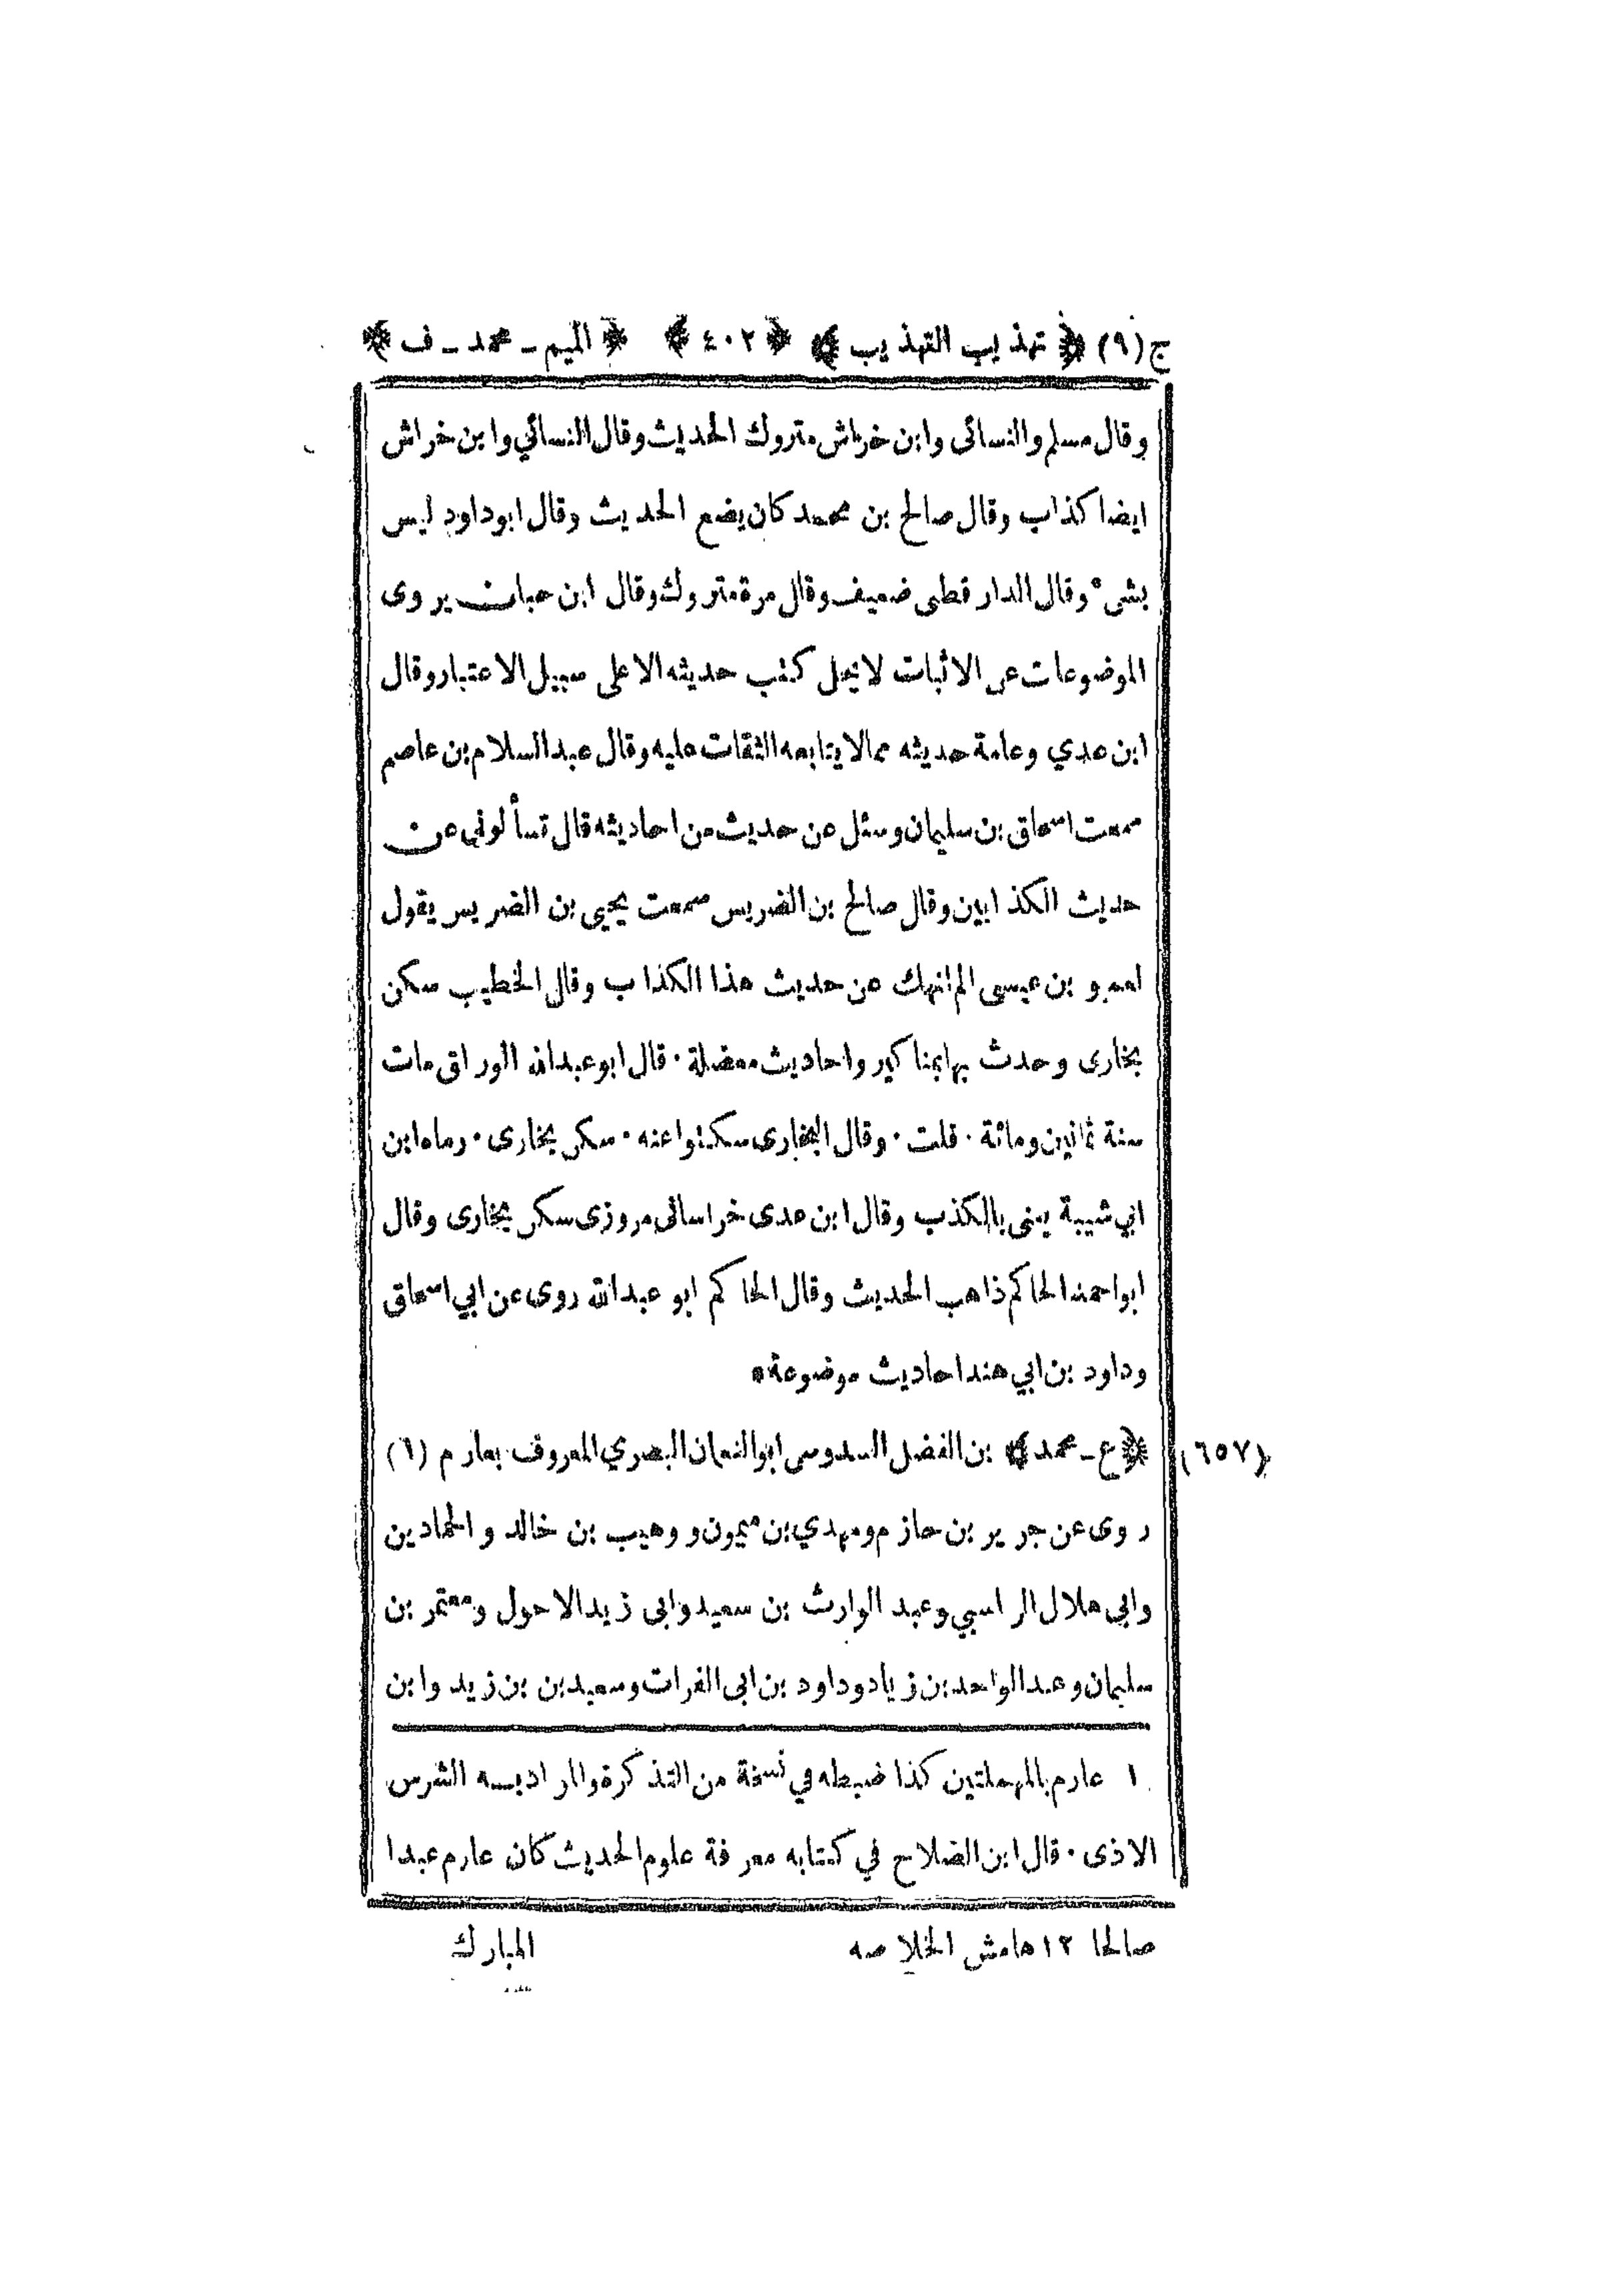 ج (٩) ﴿ تهذيب التهذيب ﴾ ﴿ ٤٠٢ ﴾ ﴿ الميم ـ محمد ـ ف ﴾
وقال مسلم والنسائى وابن خراش متروك الحديث وقال النسائي وابن خراش
ايضا كذاب وقال صالح بن محمد كان يضع الحديث وقال ابوداود ليس
بشىء وقال الدارقطى ضعيف وقال مرة متروك وقال ابن حبان يروى
الموضوعات عن الاثبات لا يحل كتب حديثه الا على سبيل الاعتبار وقال
ابن عدي وعامة حديثه مما لا يتابعه الثقات عليه وقال عبد السلام بن عاصم
سمعت اسحاق بن سليمان وسئل عن حديث من احاديثه قال تسألونى عن
حديث الكذابين وقال صالح بن الضريس سمعت يحيى بن الضريس يقول
لعمرو بن عيسى الم انهك عن حديث هذا الكذاب وقال الخطيب سكن
بخارى وحدث بها بمناكير واحاديث معضلة · قال ابو عبدالله الوراق مات
سنة ثمانين ومائة · قلت · وقال البخارى سكتوا عنه · سكن بخارى · رماه ابن
ابي شيبة يعنى بالكذب وقال ابن عدى خراسانى مروزى سكن بخارى وقال
ابو احمد الحاكم ذاهب الحديث وقال الحاكم ابو عبدالله روى عن ابي اسحاق
وداود بن ابي هند احاديث موضوعة *
(٦٥٧) ﴿ ع ـ محمد ﴾ بن الفضل السدوسى ابو النعمان البصري المعروف بعارم (١)
روى عن جرير بن حازم ومهدي بن ميمون ووهيب بن خالد والحمادين
وابى هلال الراسبي وعبد الوارث بن سعيد وابى زيد الاحول ومعتمر بن
سليمان وعبد الواحد بن زياد وداود بن ابى الفرات وسعيد بن بن زيد وابن
١ عارم بالمهملتين كذا ضبطه في نسخة من التذكرة والمراد به الشرس
الاذى · قال ابن الصلاح في كتابه معرفة علوم الحديث كان عارم عبدا
صالحا ١٢ هامش الخلاصه المبارك